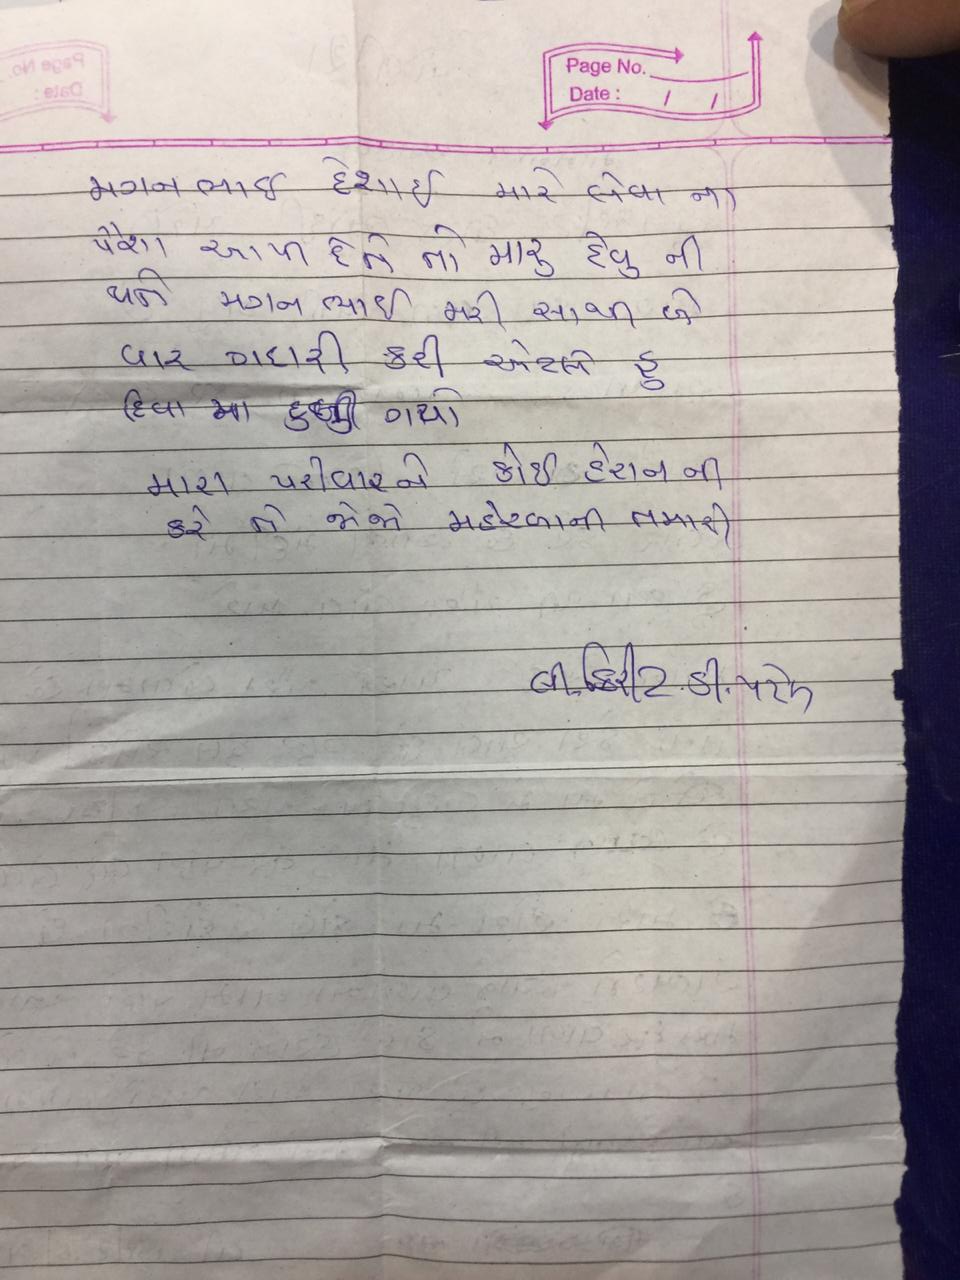 Page No.
Date : / /
મગન ભાઇ દેશાઇ મારે લેવા ના
પૈશા આપી દેતે તો મારુ દેવુ ની
થતે મગન ભાઈ મરી સાથે બે
વાર ગદારી કરી એટલે હુ
દેવા મા ગયો
મારા પરીવારને કોઈ હેરાન ની
કરે તે જોજો મહેરબાની તમારી
લી. કિરીટ. ડી. પટેલ